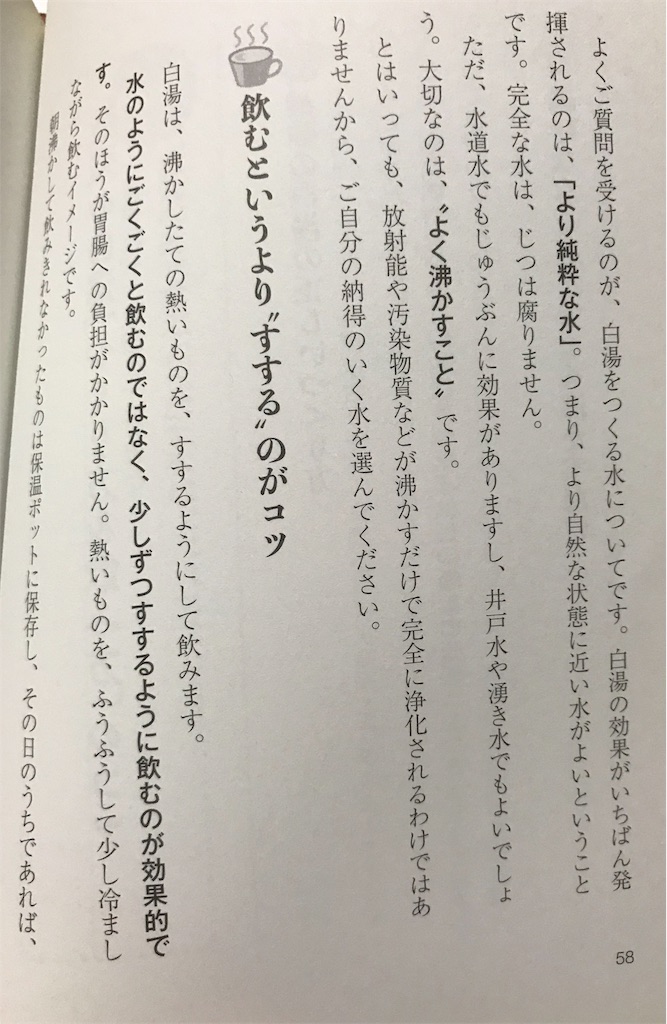 よくご質問を受けるのが、白湯をつくる水についてです。白湯の効果がいちばん発
揮されるのは、「より純粋な水」。つまり、より自然な状態に近い水がよいということ
です。完全な水は、じつは腐りません。
ただ、水道水でもじゅうぶんに効果がありますし、井戸水や湧き水でもよいでしょ
う。大切なのは、〝よく沸かすこと〟です。
とはいっても、放射能や汚染物質などが沸かすだけで完全に浄化されるわけではあ
りませんから、ご自分の納得のいく水を選んでください。
飲むというより〝すする〟のがコツ
白湯は、沸かしたての熱いものを、すするようにして飲みます。
水のようにごくごくと飲むのではなく、少しずつすするように飲むのが効果的で
す。そのほうが胃腸への負担がかかりません。熱いものを、ふうふうして少し冷まし
ながら飲むイメージです。
朝沸かして飲みきれなかったものは保温ポットに保存し、その日のうちであれば、
58